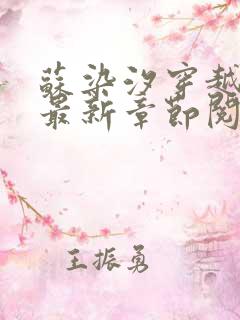 蘇染汐穿越
最新章節閱
王振勇